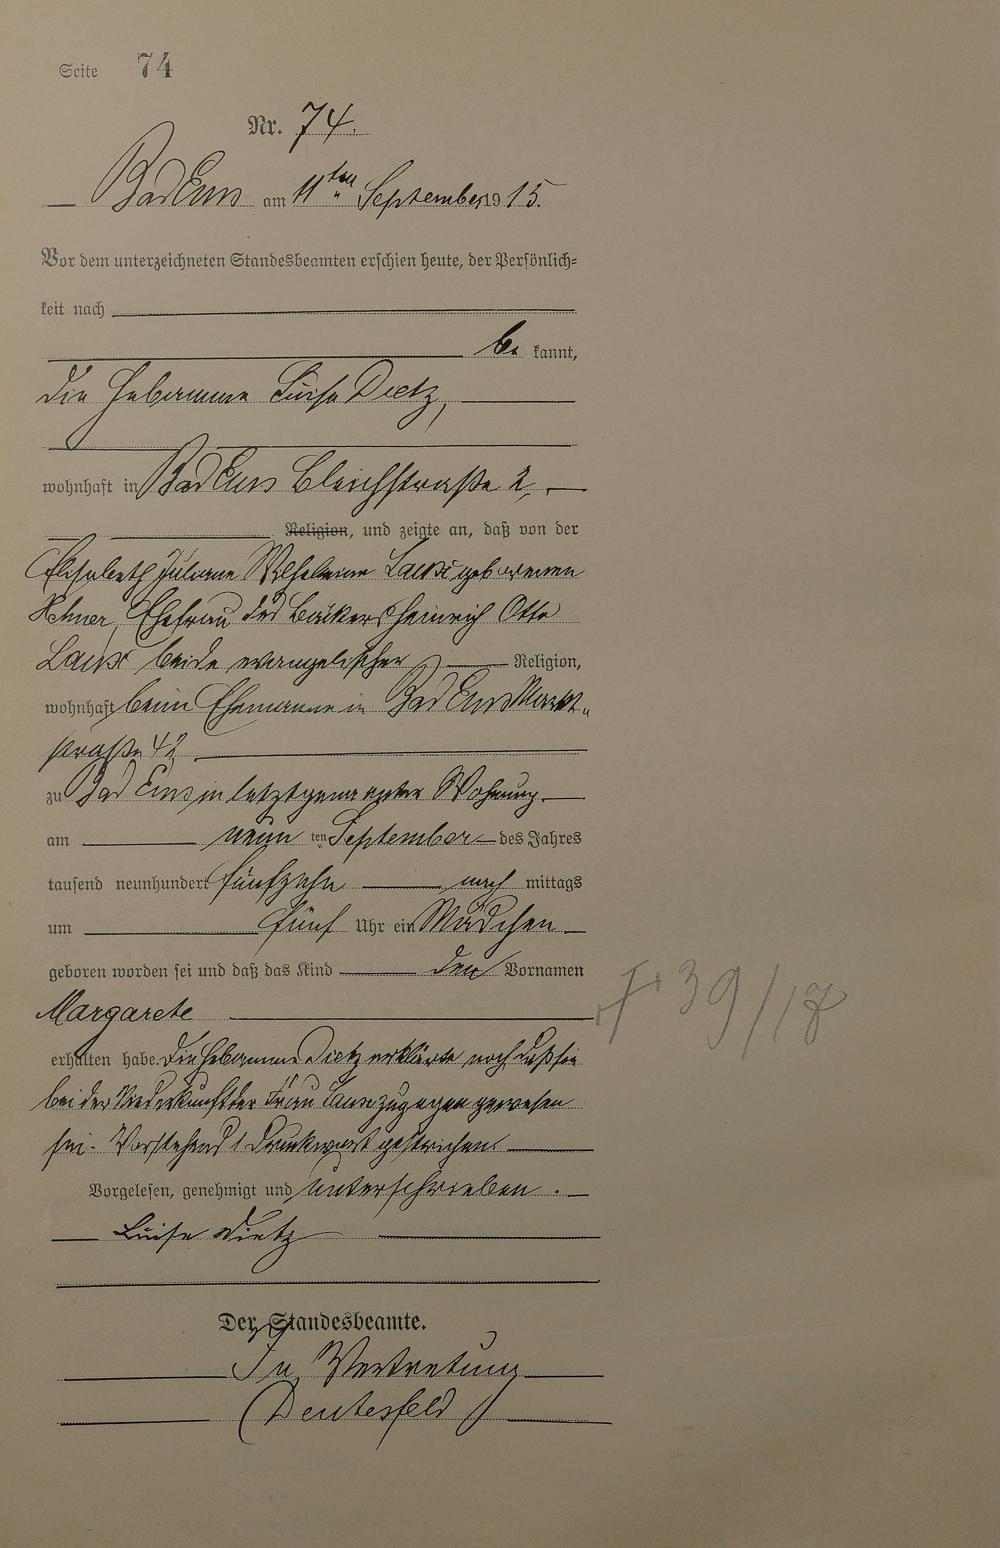 Seite 74
Nr. 74.
Bad Ems am 11ten September 1915.
Vor dem unterzeichneten Standesbeamten erschien heute, der Persönlich-
keit nach
be kannt,
die Hebamme Luise Dietz,
wohnhaft in Bad Ems Bleichstraße 2,
Religion, und zeigte an, daß von der
Elisabeth Juliane Wilhelmine geborenen
Ehefrau des Bäckers Heinrich Otto
beide evangelischer Religion,
wohnhaft beim Ehemanne in Bad Ems Markt-
straße 42
zu Bad Ems in letztgenannter Wohnung
am neun ten September des Jahres
tausend neunhundert fünfzehn nach mittags
um fünf Uhr ein Mädchen
geboren worden sei und daß das Kind den Vornamen
Margarete
† 39/17
erhalten habe. Die Hebamme Dietz erklärte noch, daß sie
bei der Niederkunft der Frau zugegen gewesen
sei. Vorstehend 1 Druckwort gestrichen.
Vorgelesen, genehmigt und unterschrieben.
Luise Dietz
Der Standesbeamte.
In Vertretung